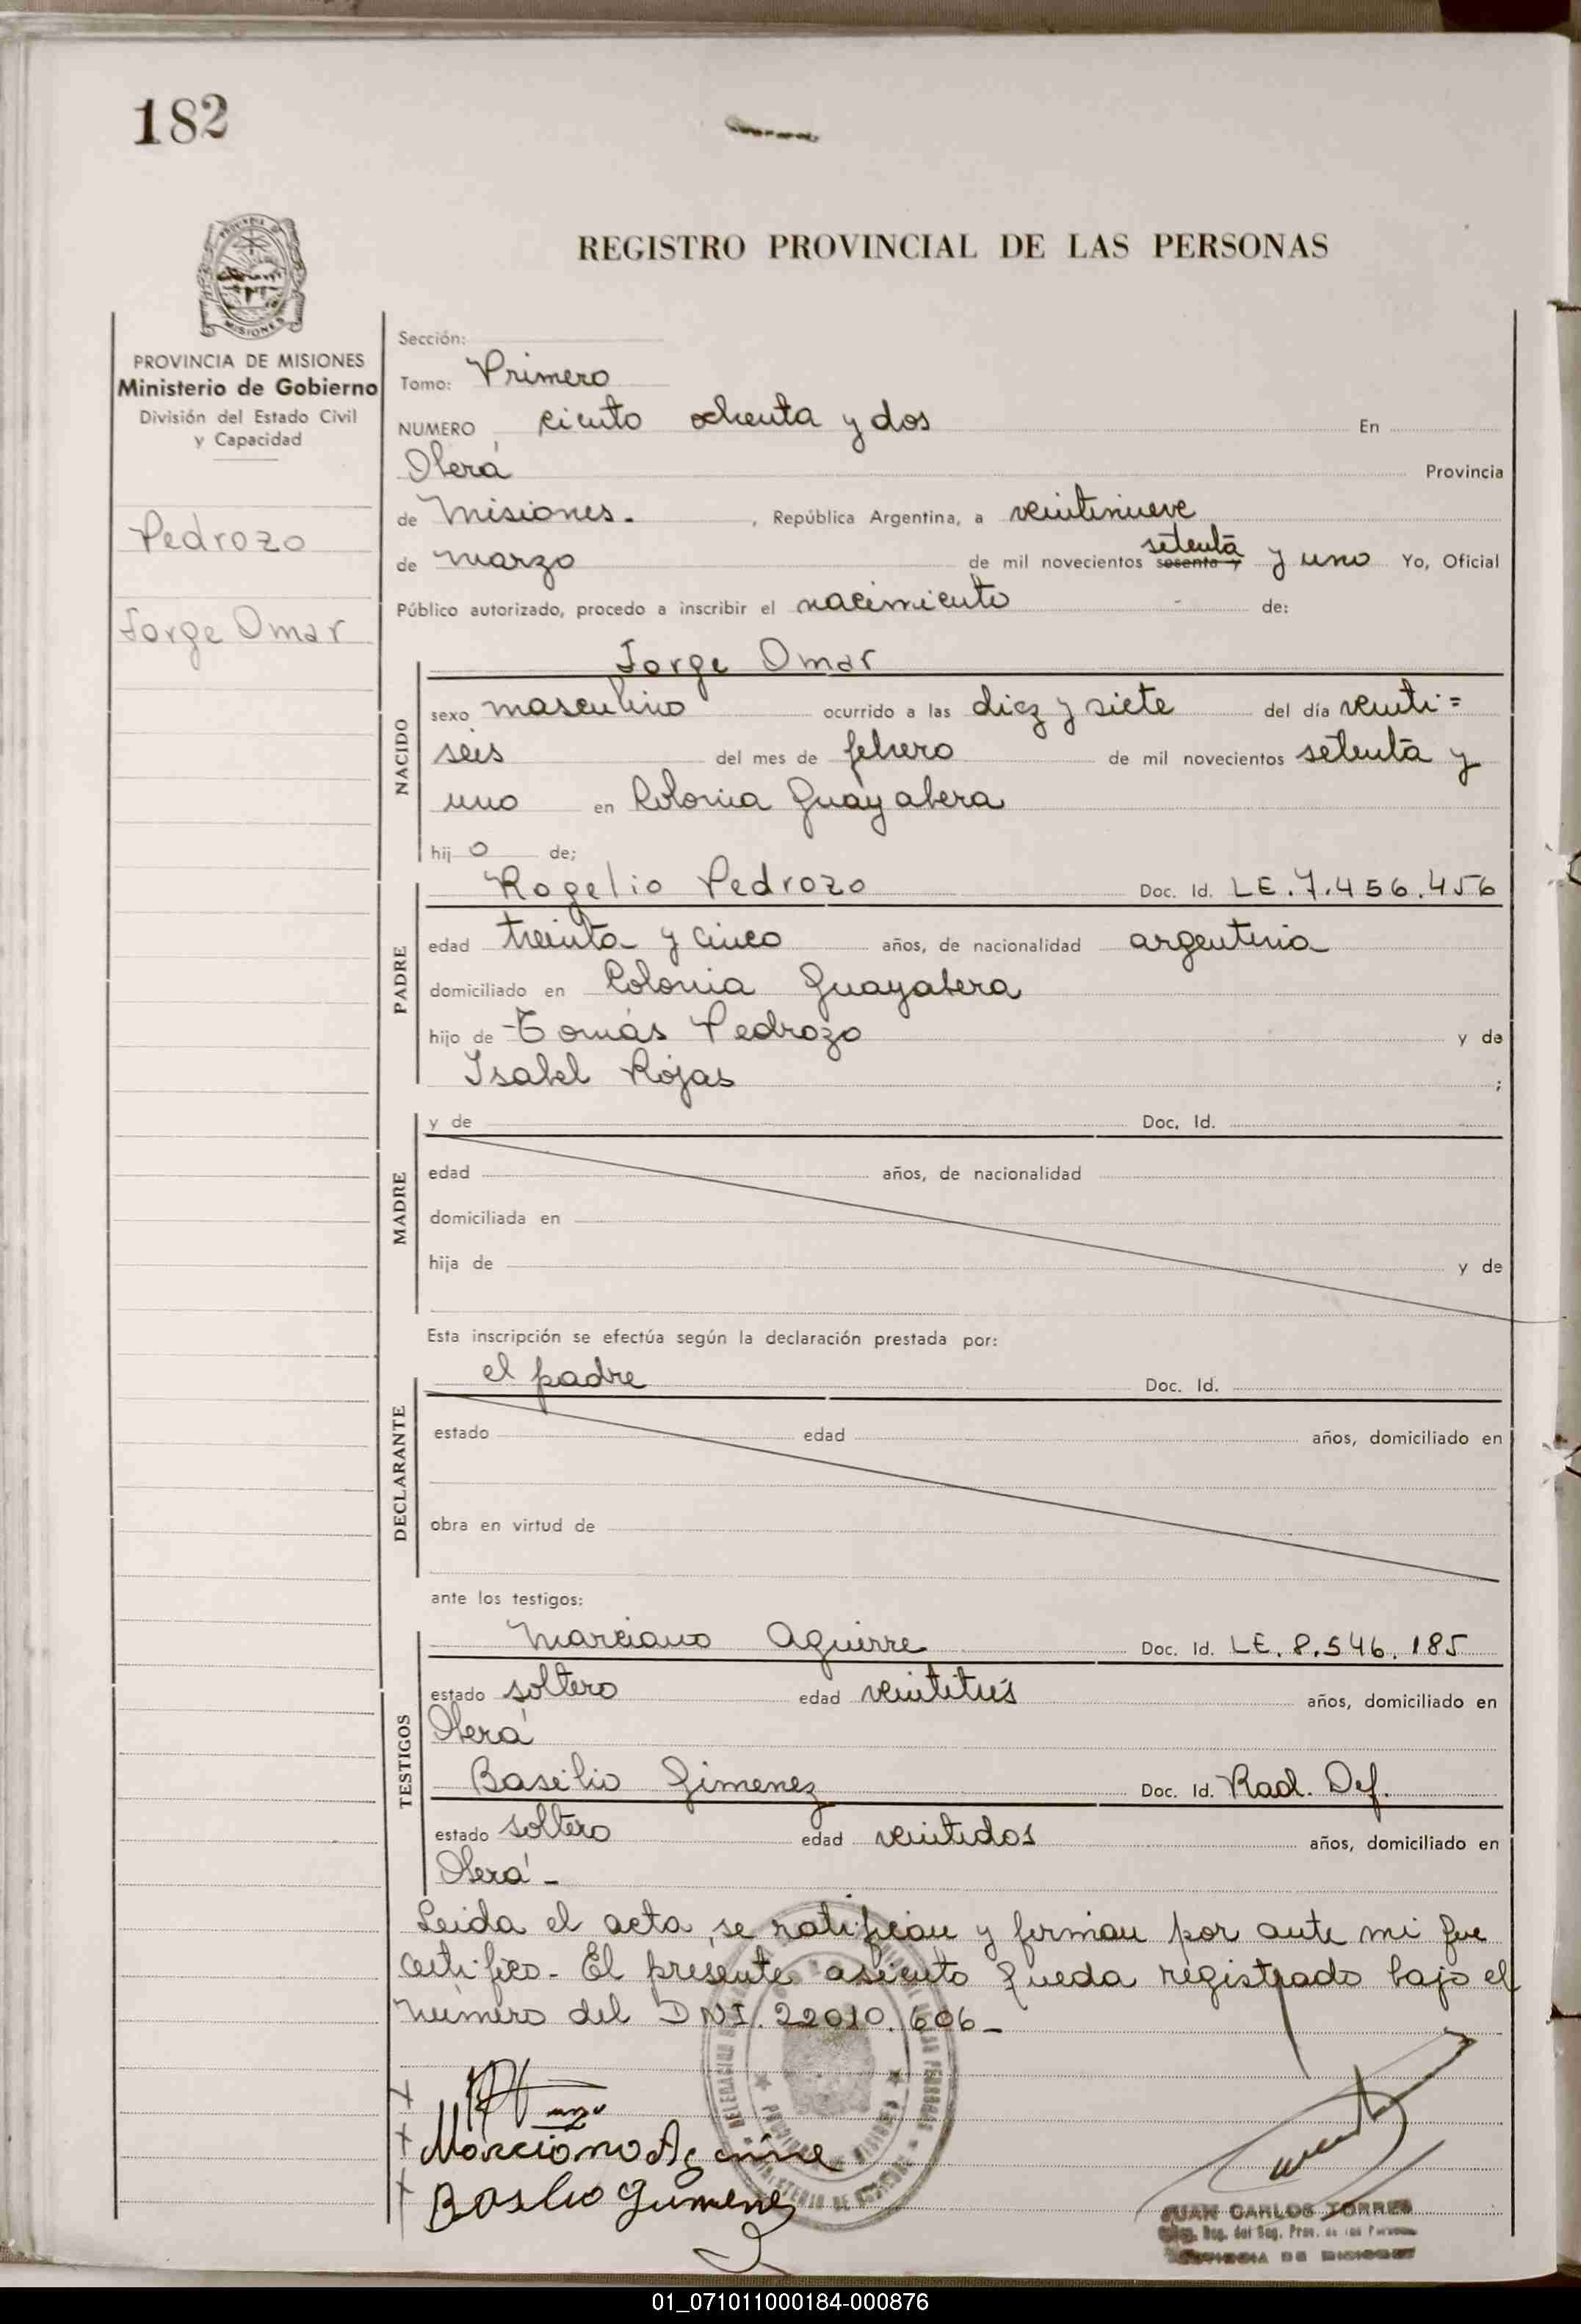 182
REGISTRO PROVINCIAL DE LAS PERSONAS
MISIONES
PROVINCIA DE MISIONES
Ministerio de Gobierno
División del Estado Civil
y Capacidad
Pedrozo
Jorge Omar
Sección:
Tomo: Primero
NUMERO ciento ochenta y dos En
Oberá Provincia
de Misiones. , República Argentina, a veintinueve
de marzo de mil novecientos sesenta y setenta y uno Yo, Oficial
Público autorizado, procedo a inscribir el nacimiento de:
NACIDO
Jorge Omar
sexo masculino ocurrido a las diez y siete del día veinti=
seis del mes de febrero de mil novecientos setenta y
uno en Colonia Guayabera
hijo de;
PADRE
Rogelio Pedrozo Doc. Id. LE. 7.456.456
edad treinta y cinco años, de nacionalidad argentina
domiciliado en Colonia Guayabera
hijo de Tomás Pedrozo y de
Isabel Rojas ;
MADRE
y de Doc. Id.
edad años, de nacionalidad
domiciliada en
hija de y de
Esta inscripción se efectúa según la declaración prestada por:
DECLARANTE
el padre Doc. Id.
estado edad años, domiciliado en
obra en virtud de
ante los testigos:
TESTIGOS
Marciano Aguirre Doc. Id. LE. 8.546.185
estado soltero edad veintitrés años, domiciliado en
Oberá
Basilio Gimenez Doc. Id. Rad. Def.
estado soltero edad veintidos años, domiciliado en
Oberá -
Leida el acta, se ratifican y firman por ante mi que
certifico - El presente asiento queda registrado bajo el
número del DNI. 22010.606 -
Marciano Aguirre
Basilio Gimenez
JUAN CARLOS TORRES
PROVINCIA DE MISIONES
01_071011000184-000876